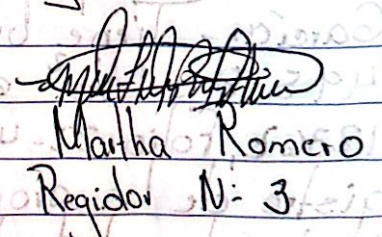 Martha Romero
Regidor N: 3